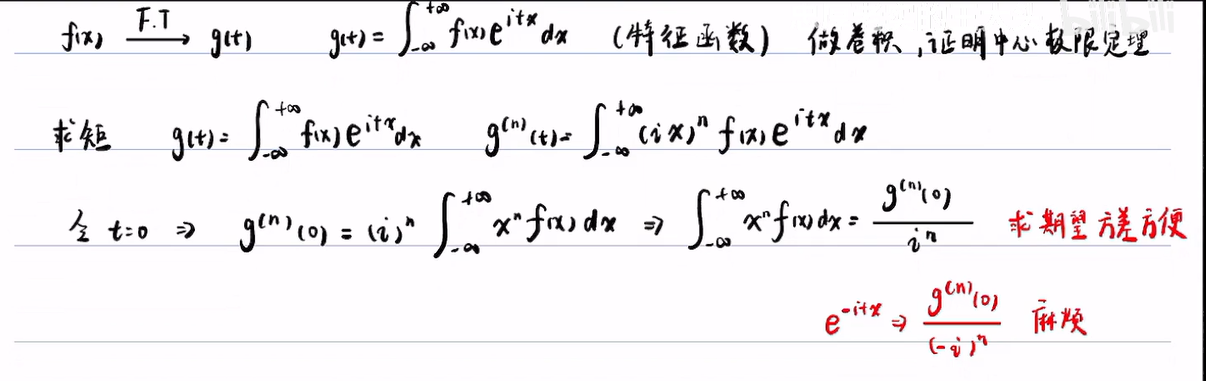 bilibili
f(x) \xrightarrow{F.T} g(t)   g(t)=\int_{-\infty}^{+\infty} f(x)e^{itx}dx （特征函数） 做卷积，证明中心极限定理
求矩   g(t)=\int_{-\infty}^{+\infty} f(x)e^{itx}dx   g^{(n)}(t)=\int_{-\infty}^{+\infty} (ix)^n f(x)e^{itx}dx
令 t=0 ⇒ g^{(n)}(0)=(i)^n \int_{-\infty}^{+\infty} x^n f(x)dx ⇒ \int_{-\infty}^{+\infty} x^n f(x)dx = \frac{g^{(n)}(0)}{i^n} 求期望方差方便
e^{-itx} ⇒ \frac{g^{(n)}(0)}{(-i)^n} 麻烦